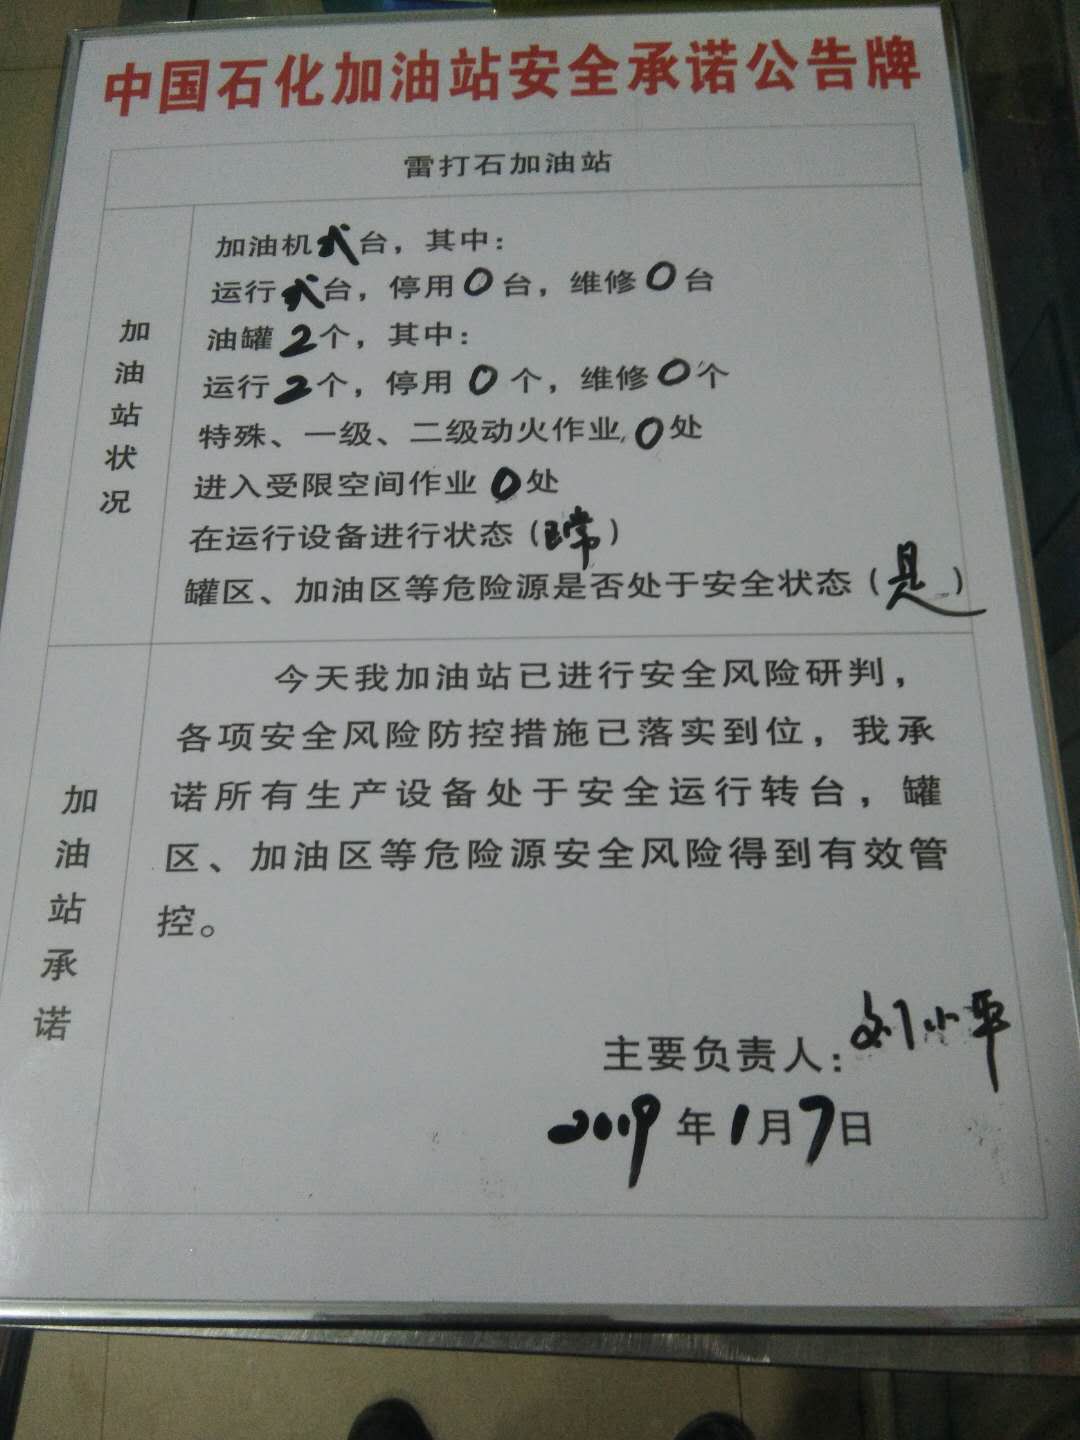 中国石化加油站安全承诺公告牌
雷打石加油站
加油站状况
加油机弍台，其中：
运行弍台，停用0台，维修0台
油罐2个，其中：
运行2个，停用0个，维修0个
特殊、一级、二级动火作业0处
进入受限空间作业0处
在运行设备进行状态（正常）
罐区、加油区等危险源是否处于安全状态（是）
加油站承诺
今天我加油站已进行安全风险研判，
各项安全风险防控措施已落实到位，我承
诺所有生产设备处于安全运行转台，罐
区、加油区等危险源安全风险得到有效管
控。
主要负责人：刘小平
2019年1月7日